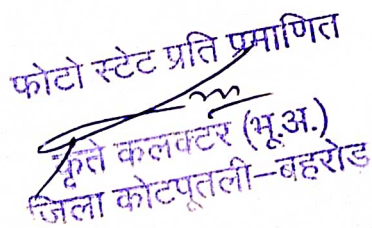 फोटो स्टेट प्रति प्रमाणित
कृते कलक्टर (भू.अ.)
जिला कोटपूतली-बहरोड